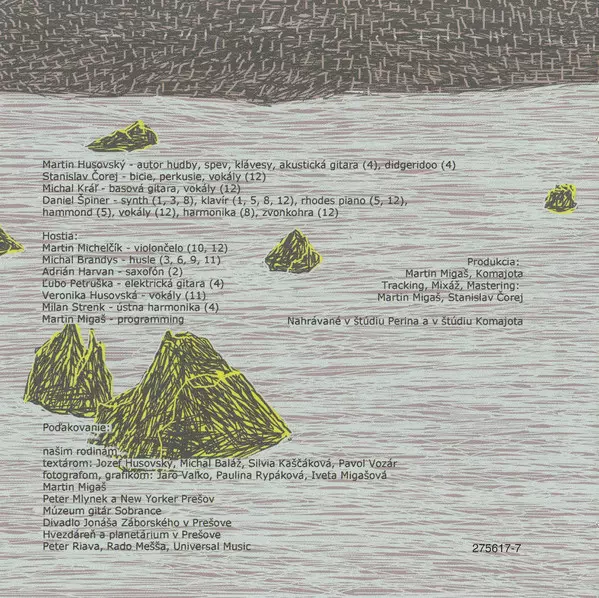 Martin Husovský - autor hudby, spev, klávesy, akustická gitara (4), didgeridoo (4)
Stanislav Čorej - bicie, perkusie, vokály (12)
Michal Kráľ - basová gitara, vokály (12)
Daniel Špiner - synth (1, 3, 8), klavír (1, 5, 8, 12), rhodes piano (5, 12),
hammond (5), vokály (12), harmonika (8), zvonkohra (12)
Hostia:
Martin Michelčík - violončelo (10, 12)
Michal Brandys - husle (3, 6, 9, 11)
Adrián Harvan - saxofón (2)
Ľubo Petruška - elektrická gitara (4)
Veronika Husovská - vokály (11)
Milan Strenk - ústna harmonika (4)
Martin Migaš - programming
Produkcia:
Martin Migaš, Komajota
Tracking, Mixáž, Mastering:
Martin Migaš, Stanislav Čorej
Nahrávané v štúdiu Perina a v štúdiu Komajota
Poďakovanie:
našim rodinám
textárom: Jozef Husovský, Michal Baláž, Silvia Kaščáková, Pavol Vozár
fotografom, grafikom: Jaro Vaľko, Paulina Rypáková, Iveta Migašová
Martin Migaš
Peter Mlynek a New Yorker Prešov
Múzeum gitár Sobrance
Divadlo Jonáša Záborského v Prešove
Hvezdáreň a planetárium v Prešove
Peter Riava, Rado Mešša, Universal Music
275617-7